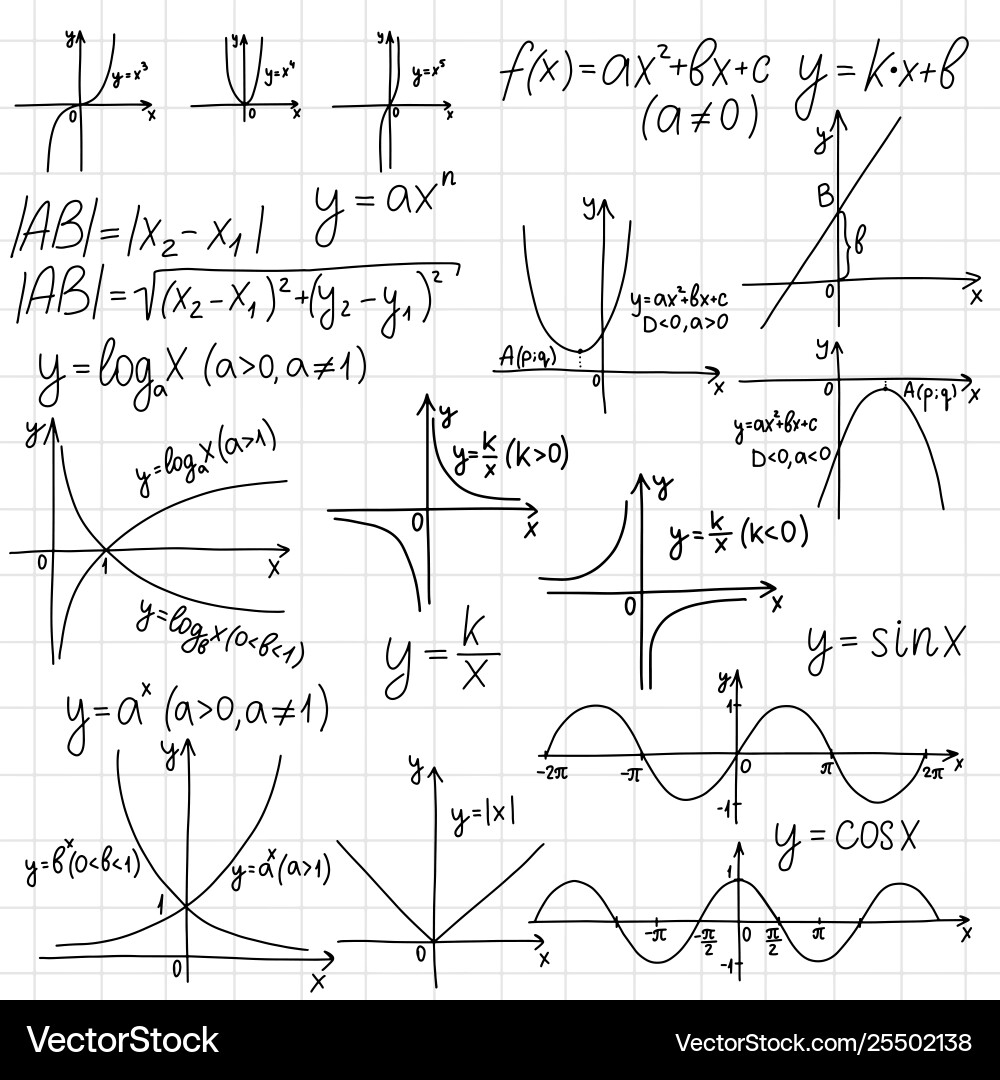 y
y=x³
0
x
y
y=x⁴
0
x
y
y=x⁵
0
x
f(x)=ax²+bx+c
(a≠0)
y=k·x+b
y
B
b
0
x
|AB|=|x₂-x₁|
y=axⁿ
|AB|=√(x₂-x₁)²+(y₂-y₁)²
y
y=ax²+bx+c
D<0,a>0
A(p;q)
0
x
y=logₐx (a>0,a≠1)
y
0
x
A(p;q)
y=ax²+bx+c
D<0,a<0
y
y=logₐx(a>1)
0
1
x
y=log_b x(0<b<1)
y
y=k/x (k>0)
0
x
y
y=k/x (k<0)
0
x
y=k/x
y=sinx
y
1
-2π
-π
0
π
2π
x
-1
y=aˣ (a>0,a≠1)
y
y=bˣ(0<b<1)
y=aˣ(a>1)
1
0
x
y
y=|x|
0
x
y=cosx
1
-π
-π/2
0
π/2
π
x
-1
VectorStock®
VectorStock.com/25502138